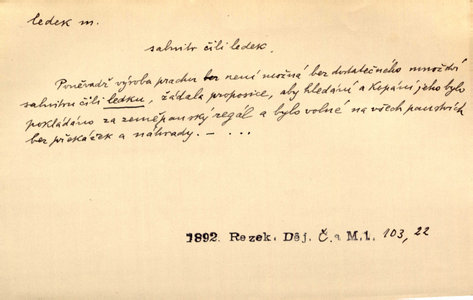 ledek m.
salnitr čili ledek.
Poněvadž výroba prachu není možná bez dostatečného množství
salnitru čili ledku, žádala proposice, aby hledání a kopání jeho bylo
pokládáno za zeměpanský regál a bylo volné na všech panstvích
bez překážek a náhrady. — ...
1892. Rezek. Děj. Č. a M. 1. 103, 22